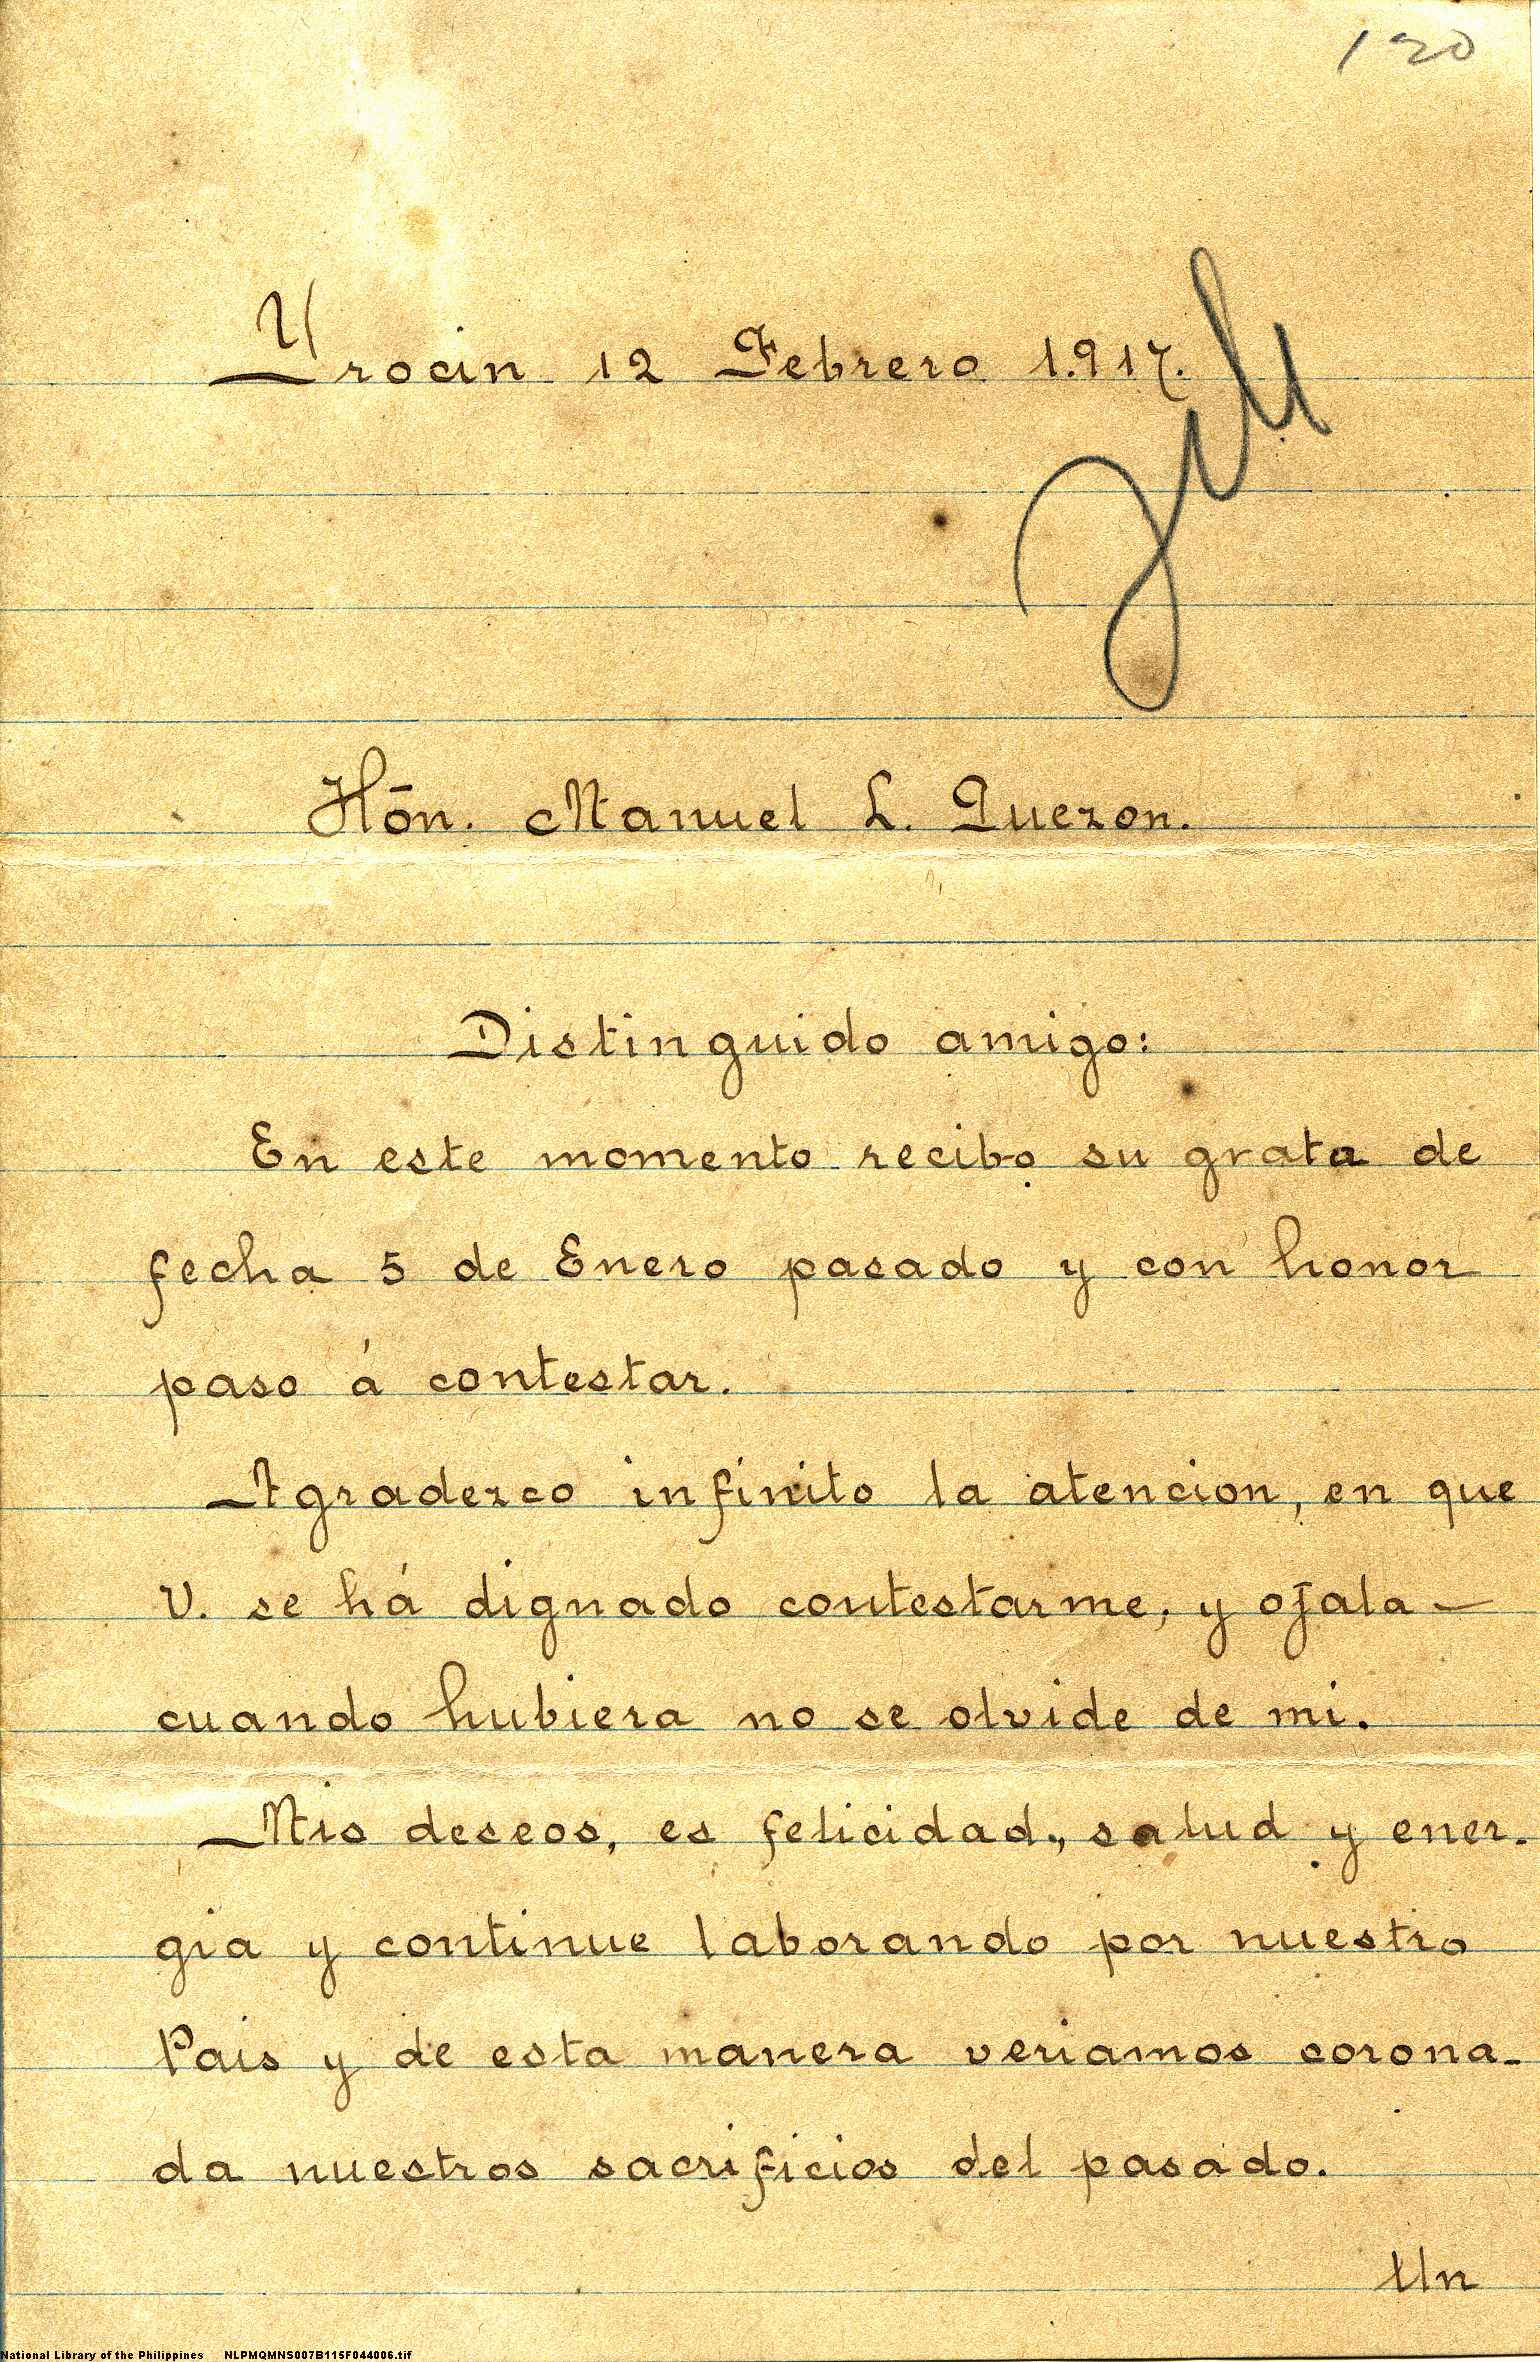 120
Yrocin 12 Febrero 1.917.
Hōn. Manuel L. Quezon.
Distinguido amigo:
En este momento recibo su grata de
fecha 5 de Enero pasado y con honor
paso á contestar.
Agradezco infinito la atencion, en que
V. se há dignado contestarme, y ojala—
cuando hubiera no se olvide de mi.
Mis deseos, es felicidad, salud y ener-
gia y continue laborando por nuestro
Pais y de esta manera veriamos corona-
da nuestros sacrificios del pasado.
Un
National Library of the Philippines NLPMQMNS007B115F044006.tif